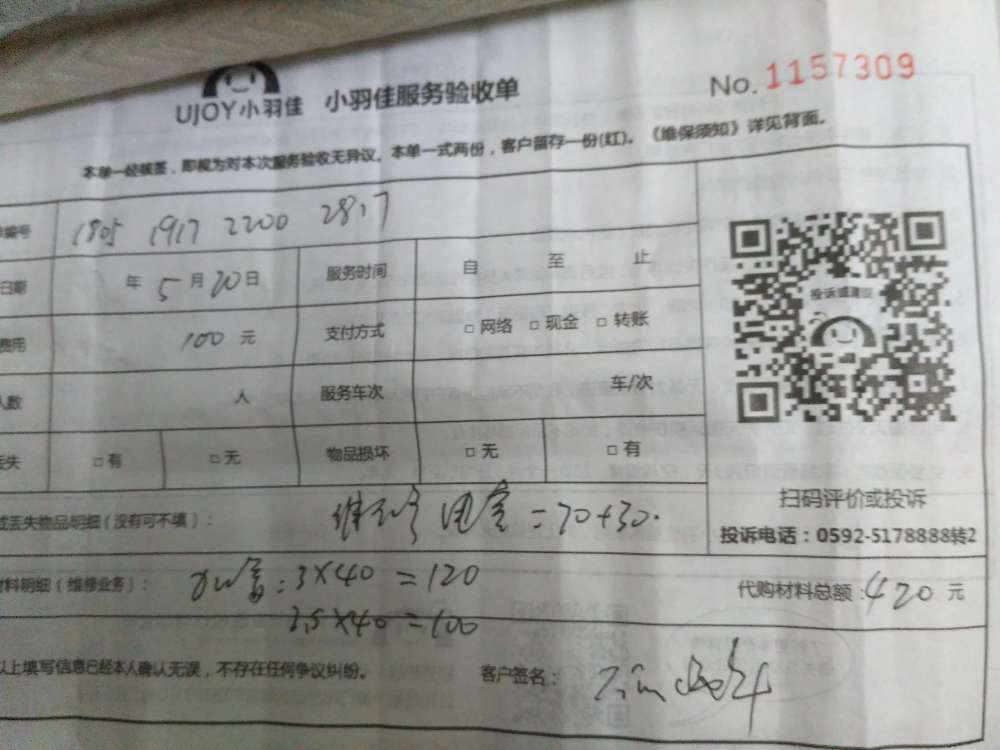 UJOY小羽佳 小羽佳服务验收单 No. 1157309
本单一经核签，即视为对本次服务验收无异议。本单一式两份，客户留存一份(红)。《维保须知》详见背面。
编号 1805 1917 2200 2817
日期 年 5 月 20 日 服务时间 自 至 止
费用 100 元 支付方式 □ 网络 □ 现金 □ 转账
人数 人 服务车次 车/次
丢失 □ 有 □ 无 物品损坏 □ 无 □ 有
投诉或建议
扫码评价或投诉
投诉电话：0592-5178888转2
或丢失物品明细（没有可不填）： = 70+30.
材料明细（维修业务）： : 3×40 =120 代购材料总额: 420 元
3.5×40=100
以上填写信息已经本人确认无误，不存在任何争议纠纷。 客户签名：